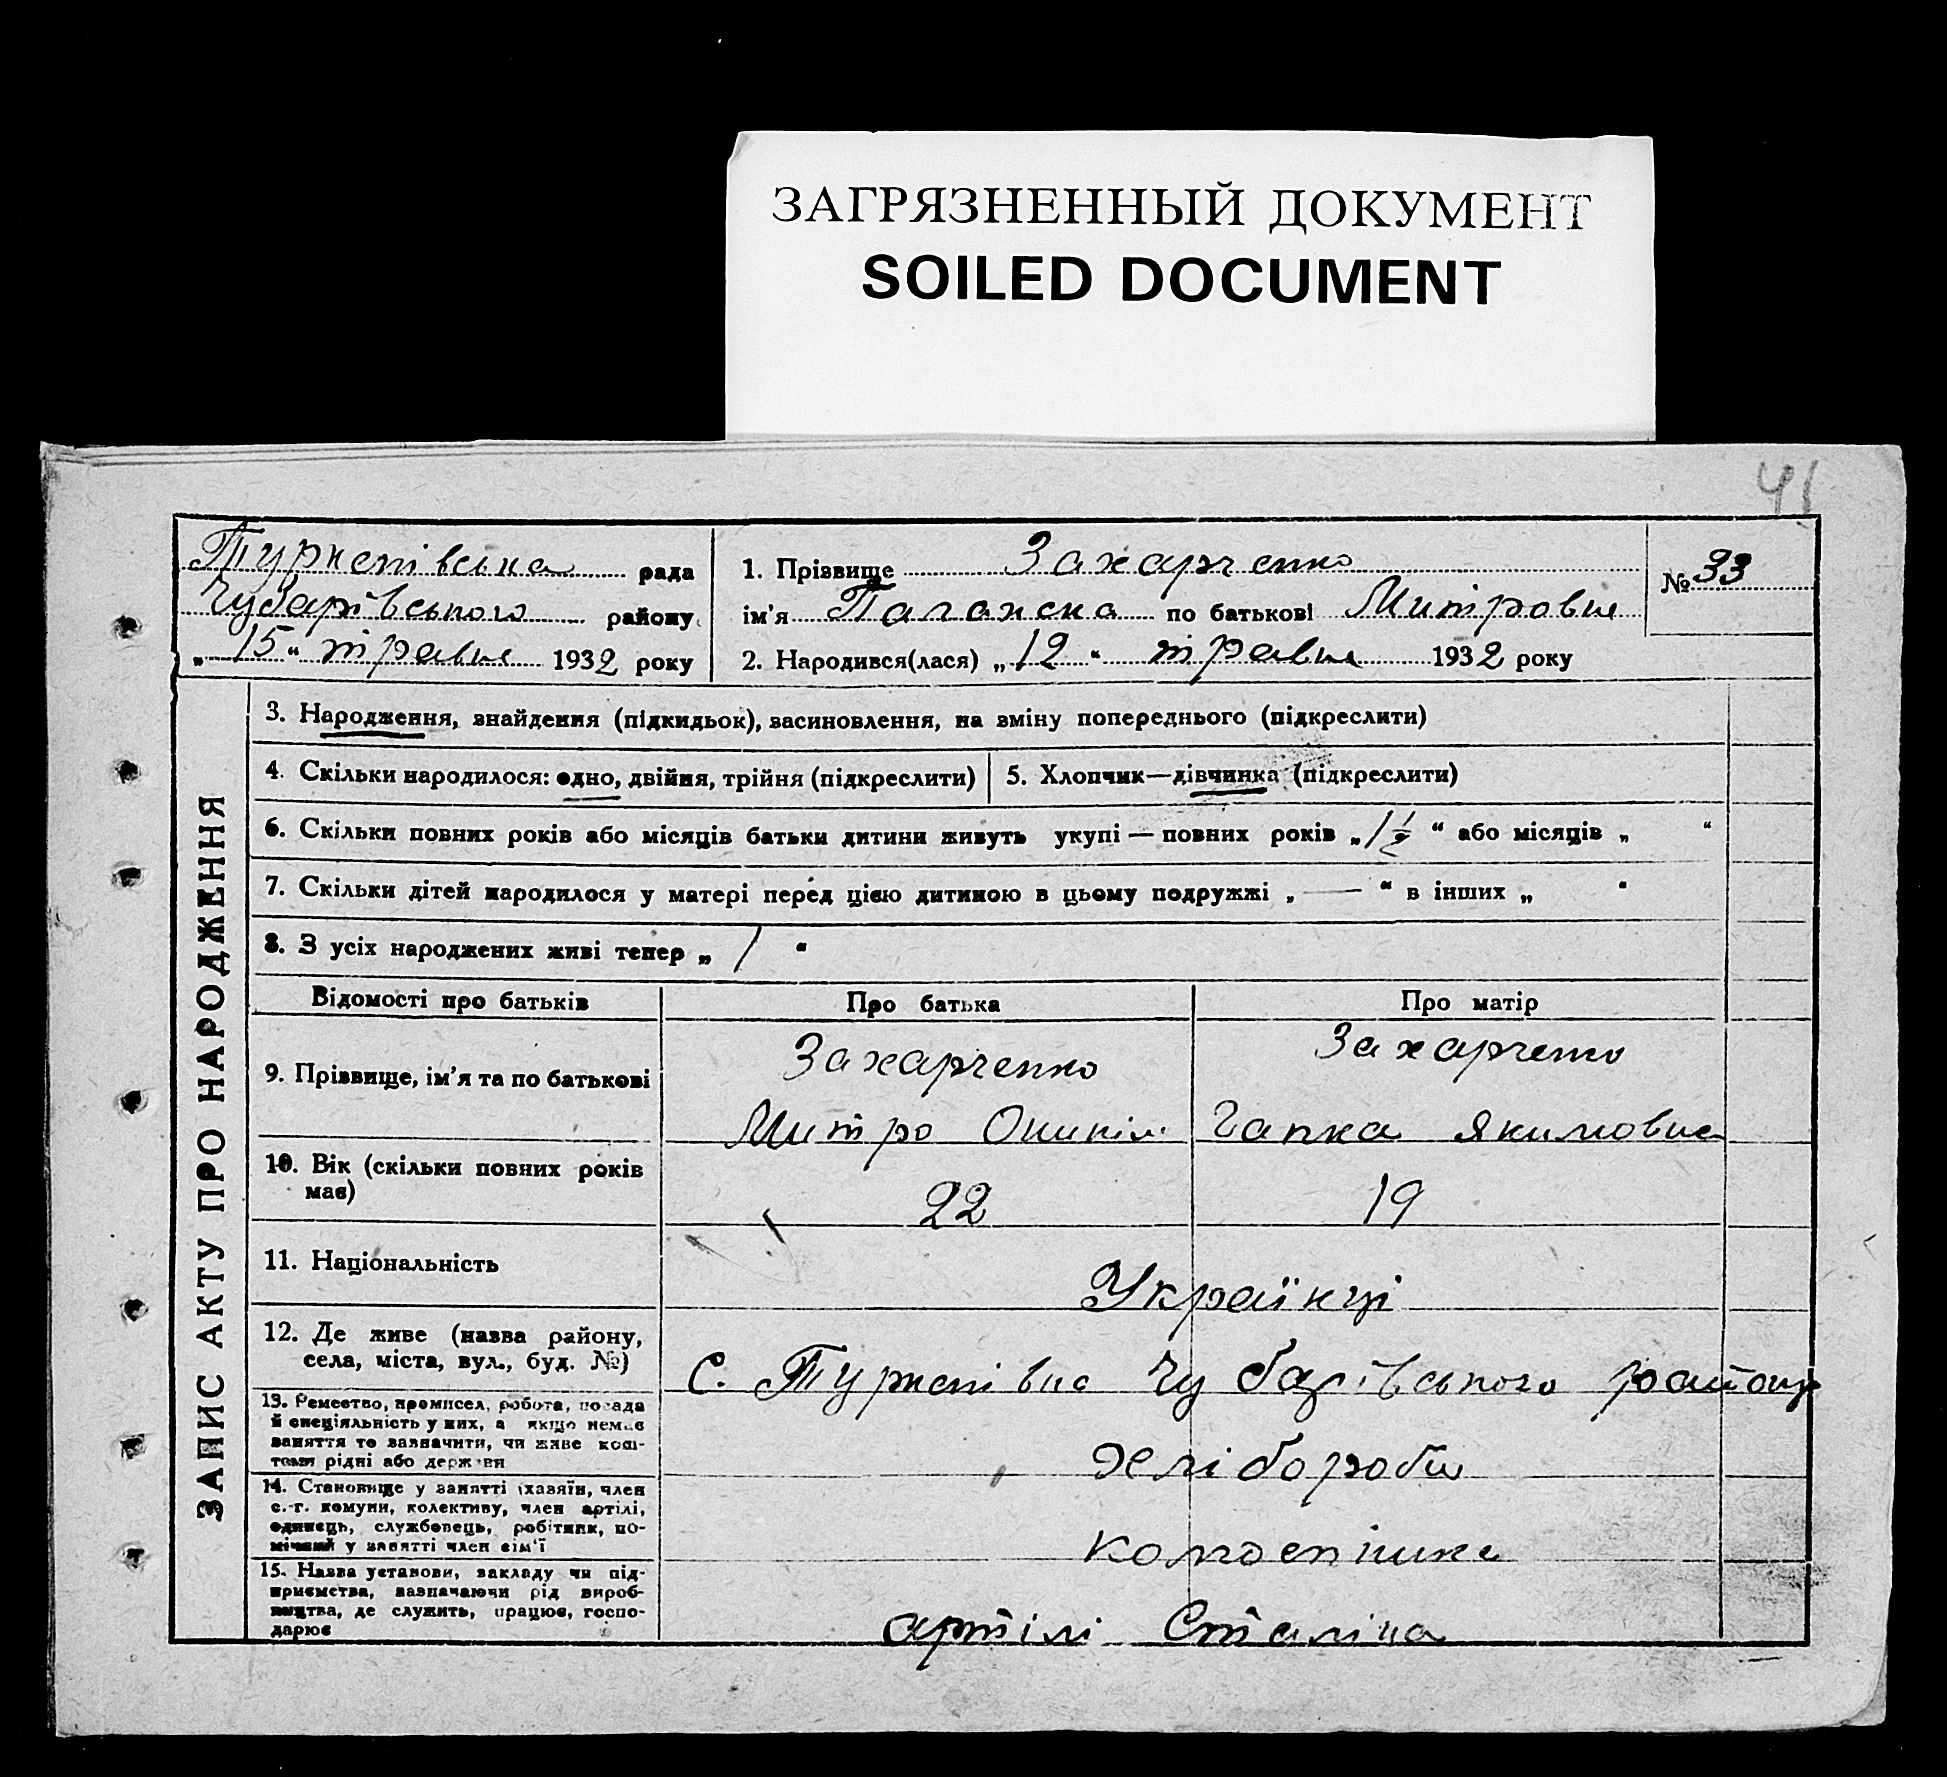 ЗАГРЯЗНЕННЫЙ ДОКУМЕНТ
SOILED DOCUMENT
41
Туркенівська рада
Чубарівського району
„ 15 “ травня 1932 року
1. Прізвище Захарченко
ім'я по батькові Митровна
2. Народився(лася) „ 12 “ травня 1932 року
№ 33
ЗАПИС АКТУ ПРО НАРОДЖЕННЯ
3. Народження, знайдення (підкидьок), васиновлення, на зміну попереднього (підкреслити)
4. Скільки народилося: одно, двійня, трійня (підкреслити)
5. Хлопчик—дівчинка (підкреслити)
6. Скільки повних років або місяців батьки дитини живуть укупі — повних років „ 1 ½ “ або місяців „ “
7. Скільки дітей народилося у матері перед цією дитиною в цьому подружжі „ — “ в інших „ “
8. З усіх народжених живі тепер „ 1 “
Відомості про батьків
Про батька
Про матір
9. Прізвище, ім'я та по батькові
Захарченко
Митро
Захарченко
Гапка Якимовна
10. Вік (скільки повних років
має)
22
19
11. Національність
Українці
12. Де живе (назва району,
села, міста, вул., буд. №)
С. Туркенівка Чубарівського району
13. Ремество, промисел, робота, посада
й спеціяльність у них, а якщо немає
заняття то зазначити, чи живе кош-
тами рідні або держави
Хлібороби
14. Становище у занятті (хазяїн, член
с.-г. комуни, колективу, член артілі,
одинець, службовець, робітник, по-
мічний у занятті член сім'ї
колгоспники
15. Назва установи, закладу чи під-
приємства, зазначаючи рід вироб-
ництва, де служить, працює, госпо-
дарює
артілі Сталіна